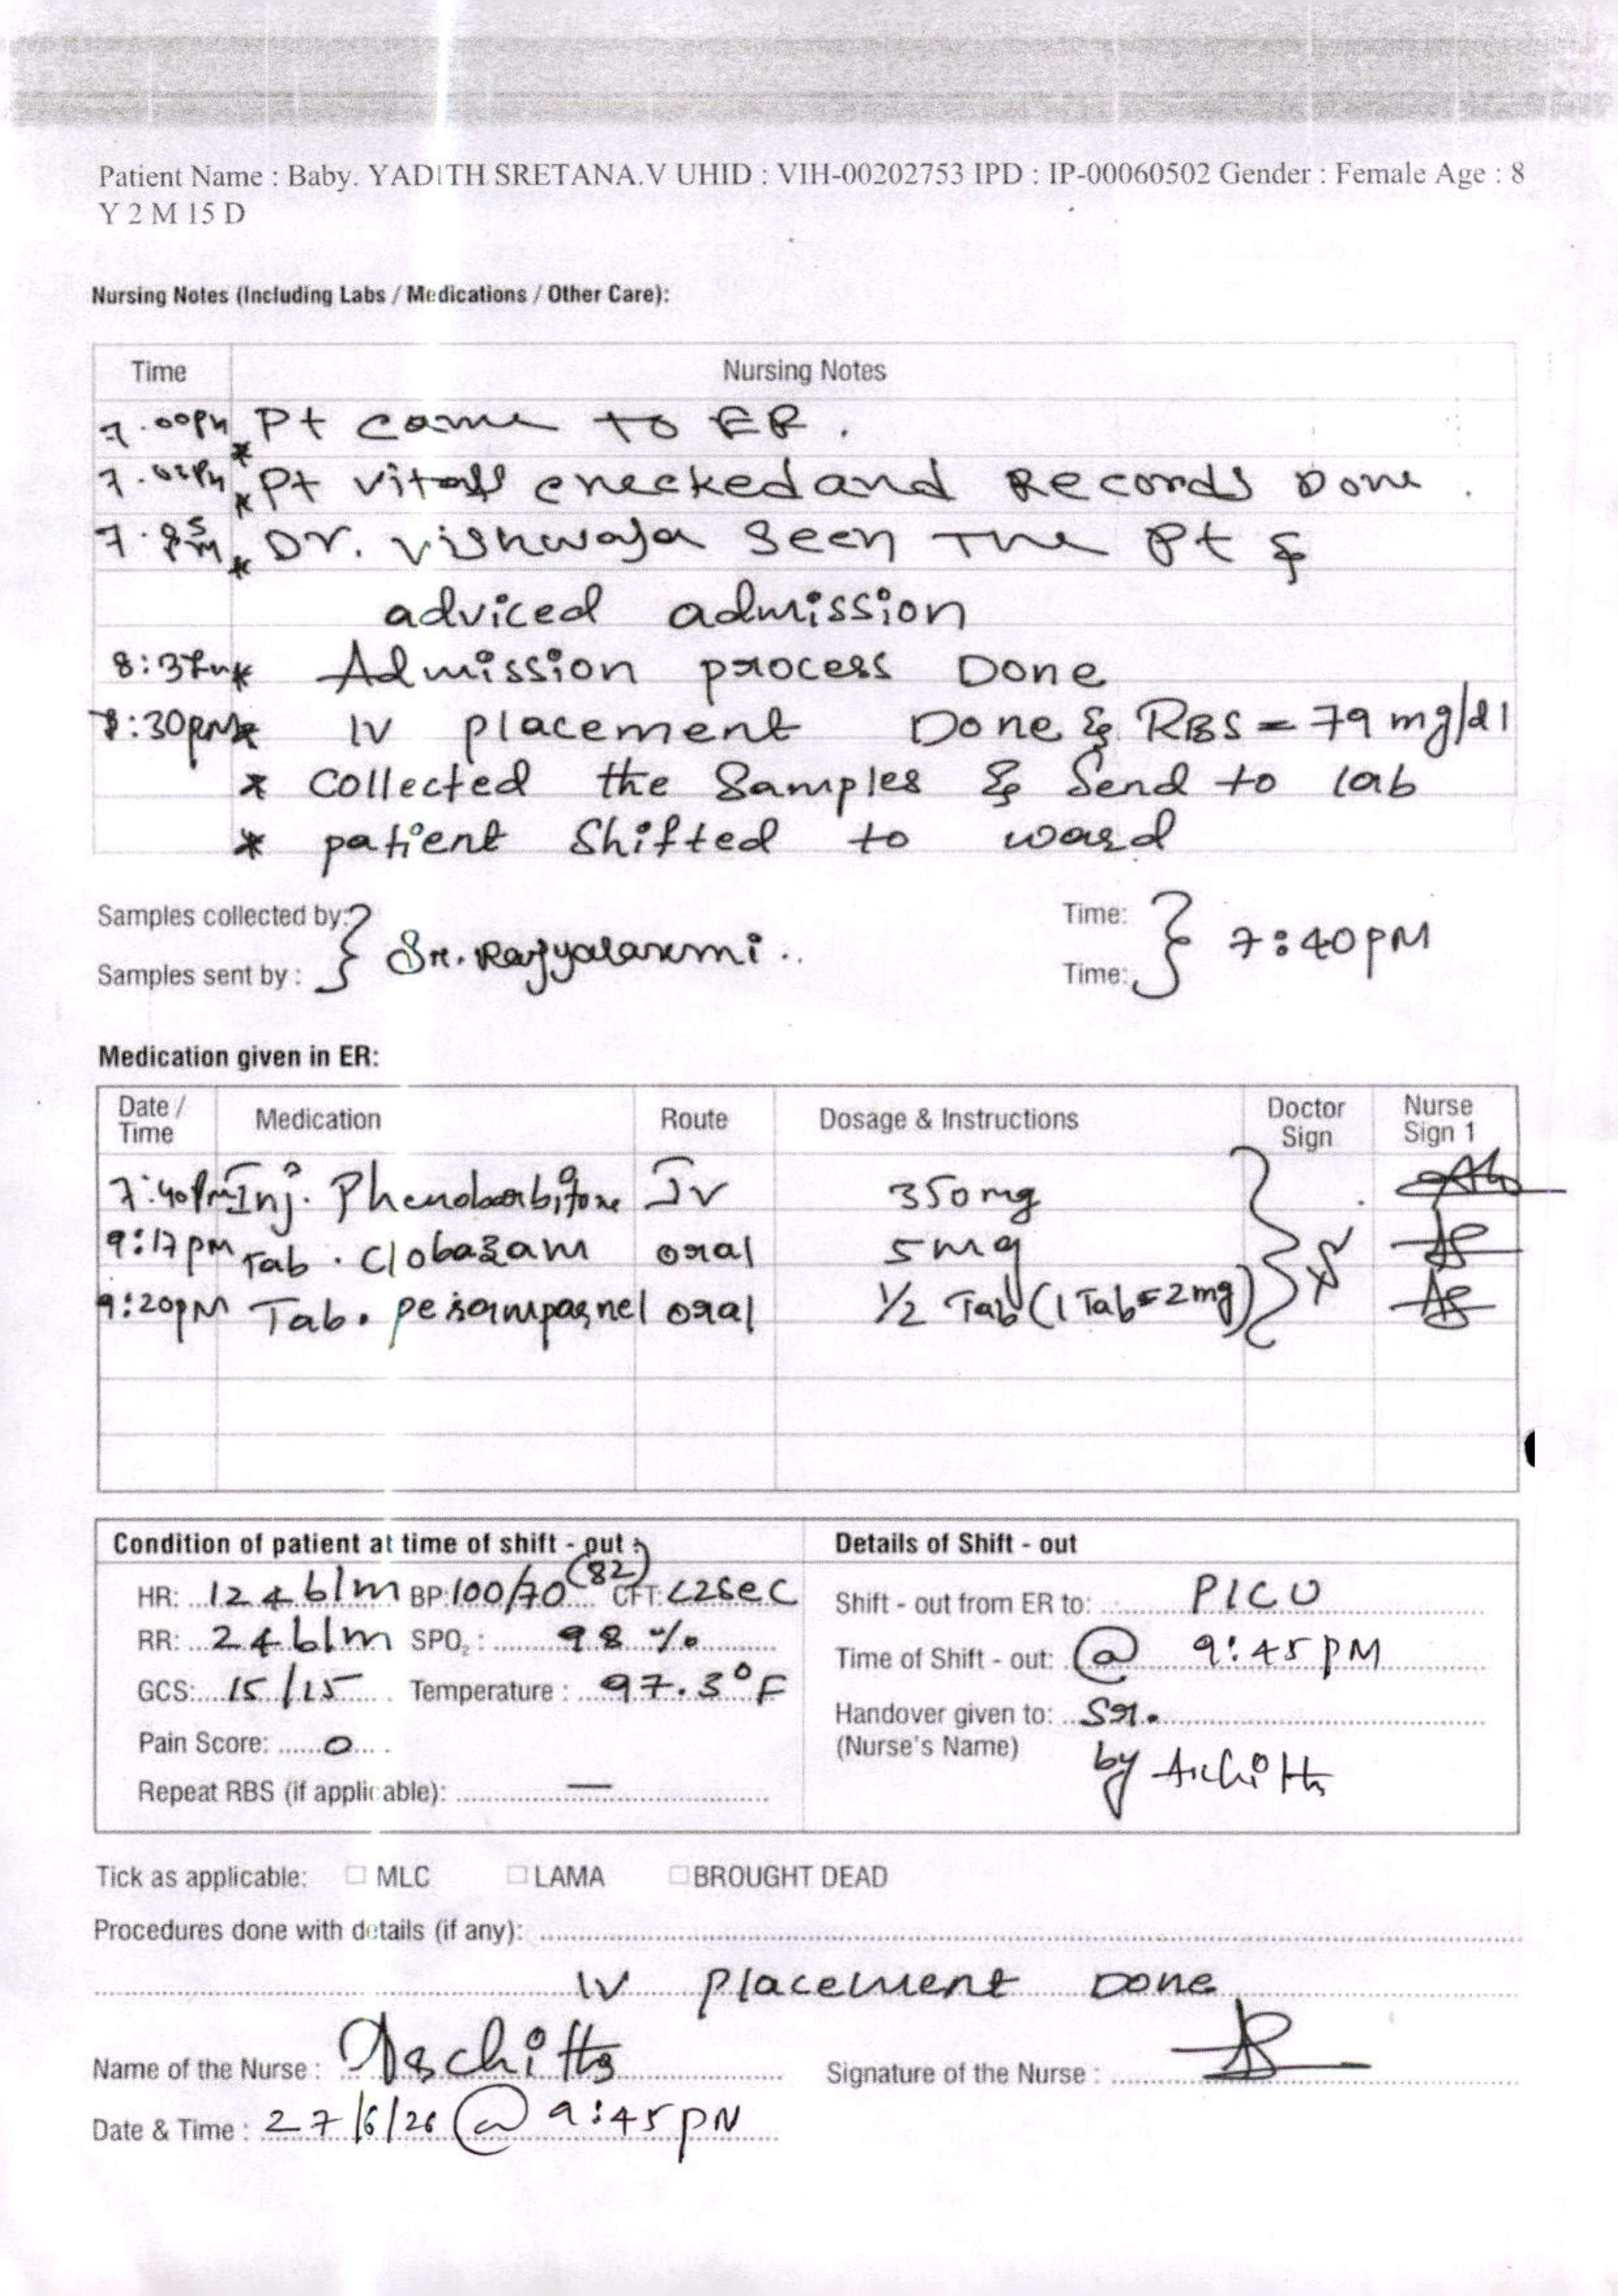 Patient Name : Baby. YADITH SRETANA.V UHID : VIH-00202753 IPD : IP-00060502 Gender : Female Age : 8
Y 2 M 15 D
Nursing Notes (Including Labs / Medications / Other Care):
Time Nursing Notes
7.00PM * Pt came to ER.
* Pt vitals checked and Records Done.
* Dr. Vishwaja seen The Pt &
adviced admission
* Admission process Done
:30PM * IV placement Done & RBS = 79 mg/dl
* Collected the Samples & Send to lab
* patient Shifted to ward
Samples collected by: } Sr. Rajyalaxmi.. Time: } 7:40PM
Samples sent by : Time:
Medication given in ER:
Date / Time Medication Route Dosage & Instructions Doctor Sign Nurse Sign 1
7:40Pm Inj. Phenobarbitone IV 350mg
9:17pm Tab. Clobazam oral 5mg
9:20pm Tab. oral 1/2 Tab (1 Tab = 2mg)
Condition of patient at time of shift - out : Details of Shift - out
HR: 124 b/m BP: 100/70 (82) CFT: <2sec Shift - out from ER to: PICU
RR: 24 b/m SPO2 : 98 % Time of Shift - out: @ 9:45 PM
GCS: 15/15 Temperature : 97.3°F Handover given to: Sr.
Pain Score: 0 (Nurse's Name) by
Repeat RBS (if applicable): —
Tick as applicable: MLC LAMA BROUGHT DEAD
Procedures done with details (if any):
IV placement Done
Name of the Nurse : Signature of the Nurse :
Date & Time : 27/6/26 @ 9:45 PM